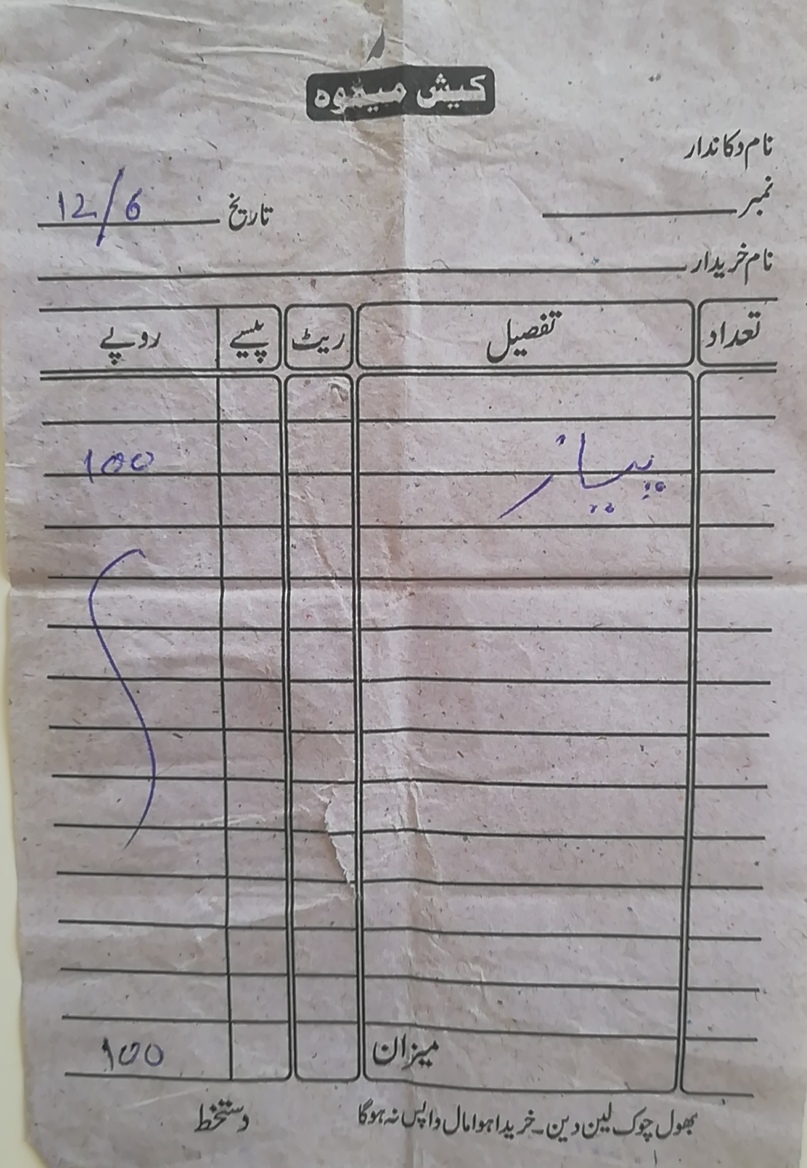 کیش میمو
نام دکاندار
نمبر تاریخ 12/6
نام خریدار
تعداد تفصیل ریٹ پیسے روپے
پیاز 100
میزان 100
بھول چوک لین دین۔ خریدا ہوا مال واپس نہ ہوگا دستخط